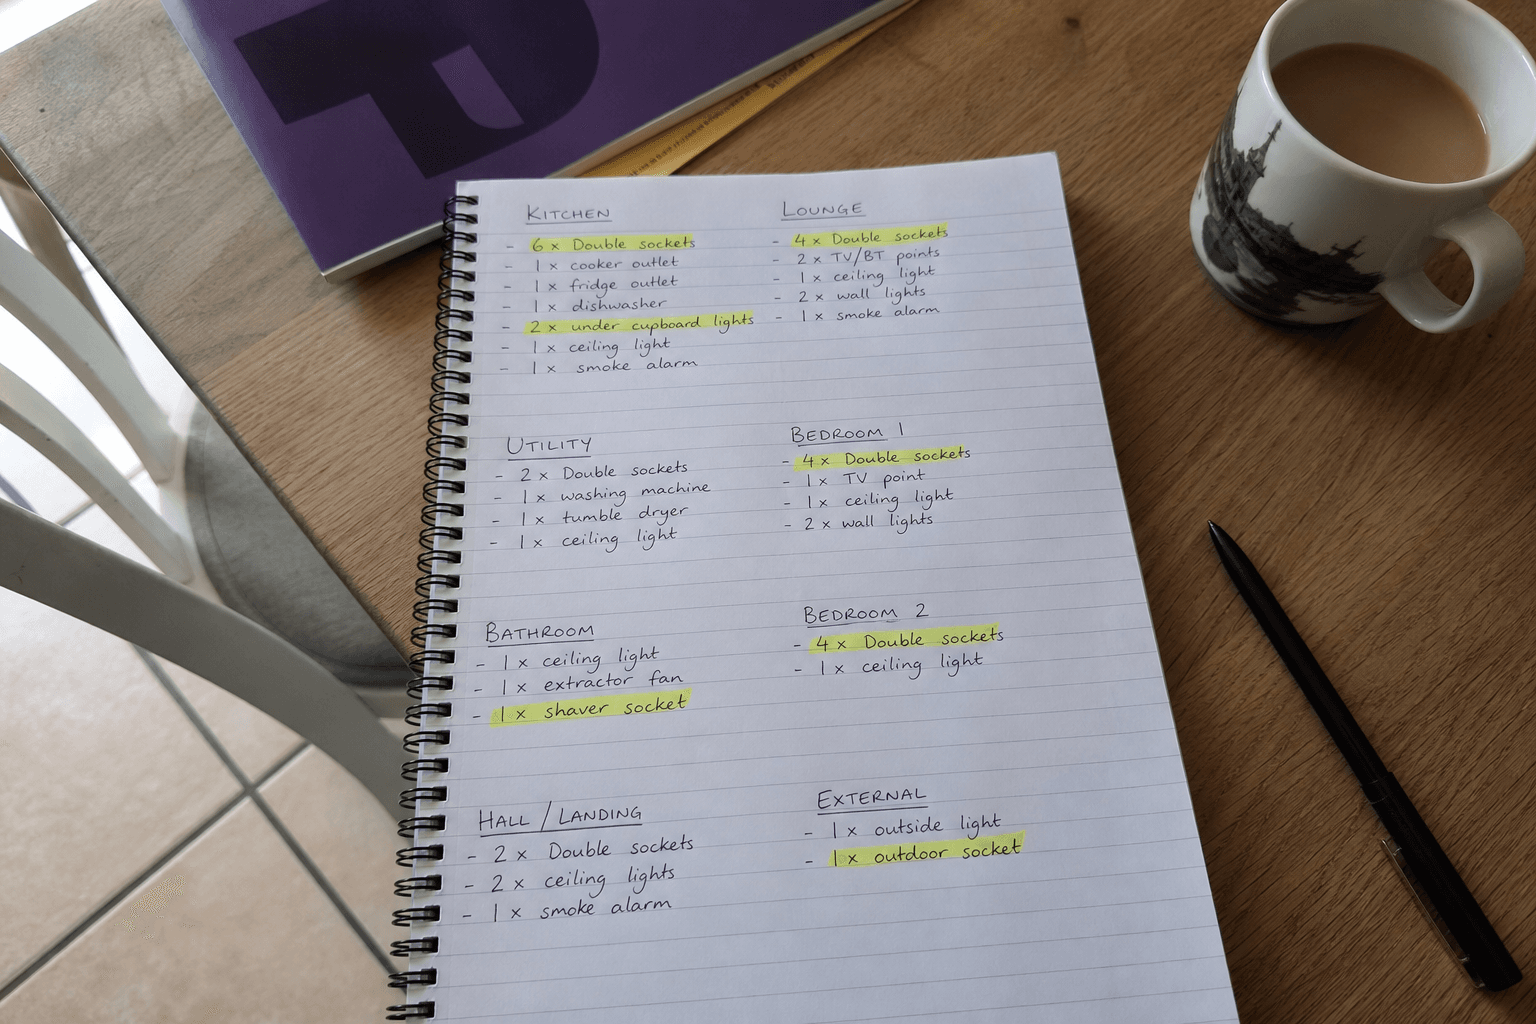 KITCHEN
- 6 x Double sockets
- 1 x cooker outlet
- 1 x fridge outlet
- 1 x dishwasher
- 2 x under cupboard lights
- 1 x ceiling light
- 1 x smoke alarm
LOUNGE
- 4 x Double sockets
- 2 x TV/BT points
- 1 x ceiling light
- 2 x wall lights
- 1 x smoke alarm
UTILITY
- 2 x Double sockets
- 1 x washing machine
- 1 x tumble dryer
- 1 x ceiling light
BEDROOM 1
- 4 x Double sockets
- 1 x TV point
- 1 x ceiling light
- 2 x wall lights
BATHROOM
- 1 x ceiling light
- 1 x extractor fan
- 1 x shaver socket
BEDROOM 2
- 4 x Double sockets
- 1 x ceiling light
HALL / LANDING
- 2 x Double sockets
- 2 x ceiling lights
- 1 x smoke alarm
EXTERNAL
- 1 x outside light
- 1 x outdoor socket